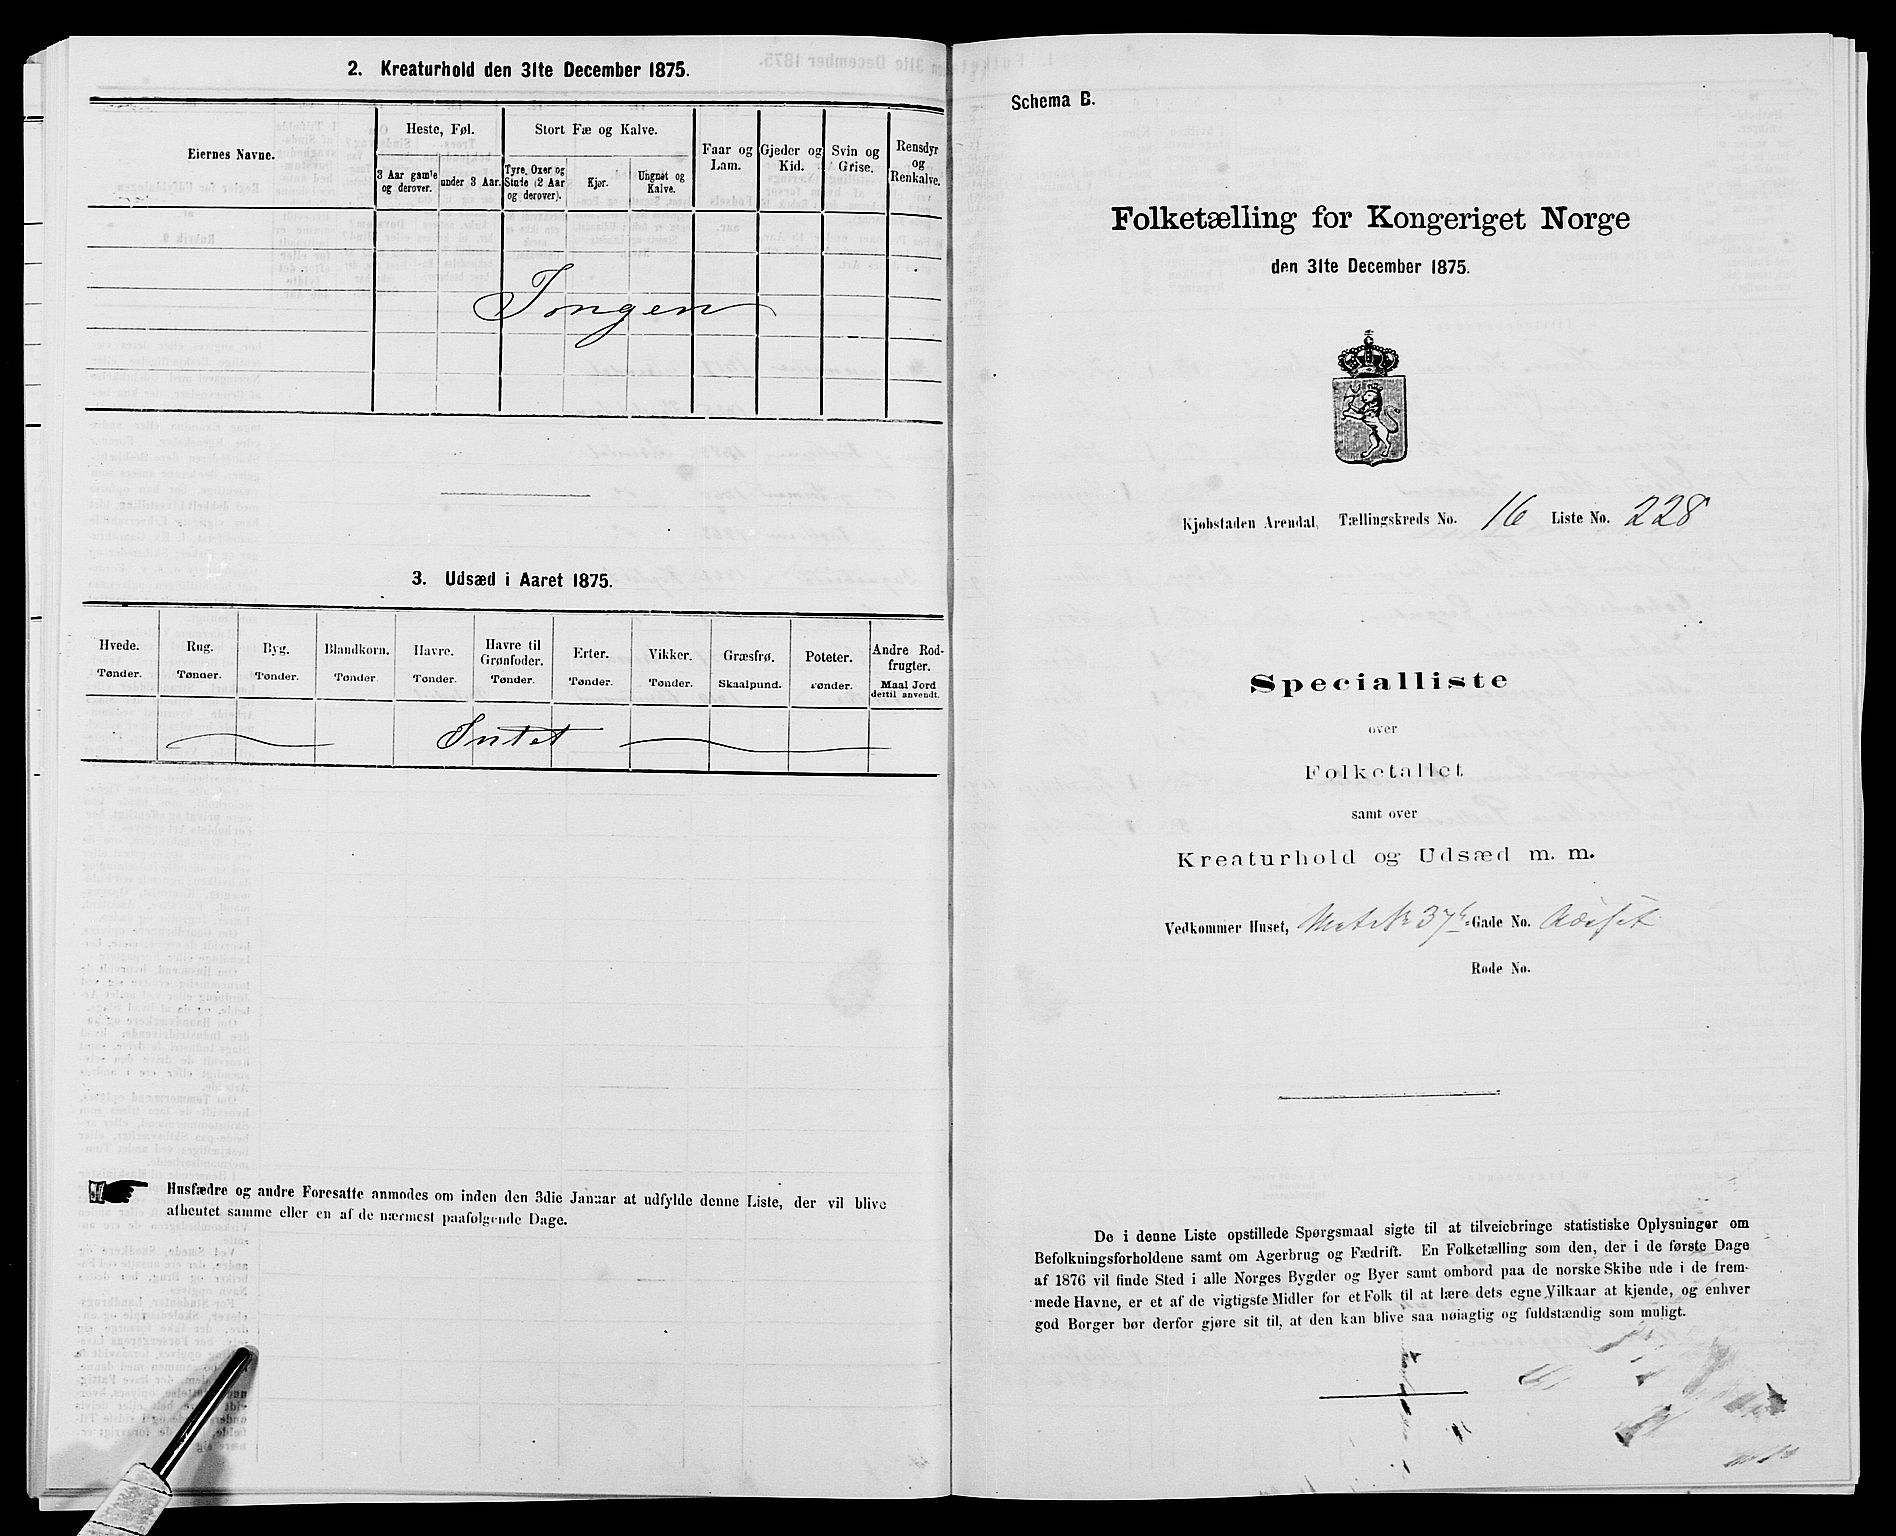 2. Kreaturhold den 31te December 1875.
Eiernes Navne.
Heste, Føl.
3 Aar gamle og derover.
under 3 Aar.
Stort Fæ og Kalve.
Tyre, Oxer og Stude (2 Aar og derover).
Kjør.
Ungnøt og Kalve.
Faar og Lam.
Gjeder og Kid.
Svin og Grise.
Rensdyr og Renkalve.
Ingen
3. Udsæd i Aaret 1875.
Hvede. Tønder.
Rug. Tønder.
Byg. Tønder.
Blandkorn. Tønder.
Havre. Tønder.
Havre til Grønfoder. Tønder.
Erter. Tønder.
Vikker. Tønder.
Græsfrø. Skaalpund.
Poteter. Tønder.
Andre Rodfrugter. Maal Jord dertil anvendt.
Intet
Husfædre og andre Foresatte anmodes om inden den 3die Januar at udfylde denne Liste, der vil blive
afhentet samme eller en af de nærmest paafølgende Dage.
Schema B.
Folketælling for Kongeriget Norge
den 31te December 1875.
Kjøbstaden Arendal, Tællingskreds No. 16 Liste No. 228
Specialliste
over
Folketallet
samt over
Kreaturhold og Udsæd m. m.
Vedkommer Huset, Matr. No 37 Gade No.
Rode No.
De i denne Liste opstillede Spørgsmaal sigte til at tilveiebringe statistiske Oplysninger om
Befolkningsforholdene samt om Agerbrug og Fædrift. En Folketælling som den, der i de første Dage
af 1876 vil finde Sted i alle Norges Bygder og Byer samt ombord paa de norske Skibe ude i de frem-
mede Havne, er et af de vigtigste Midler for et Folk til at lære dets egne Vilkaar at kjende, og enhver
god Borger bør derfor gjøre sit til, at den kan blive saa nøiagtig og fuldstændig som muligt.